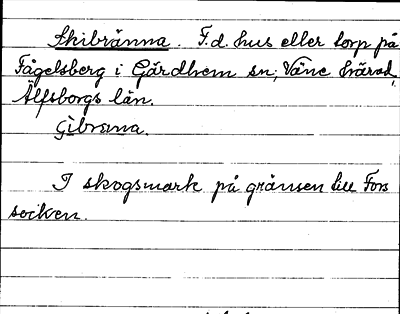 Skibränna. F.d. hus eller torp på
Fågelsberg i Gärdhem sn; Väne härad,
Älfsborgs län.
I skogsmark på gränsen till Fors
socken.